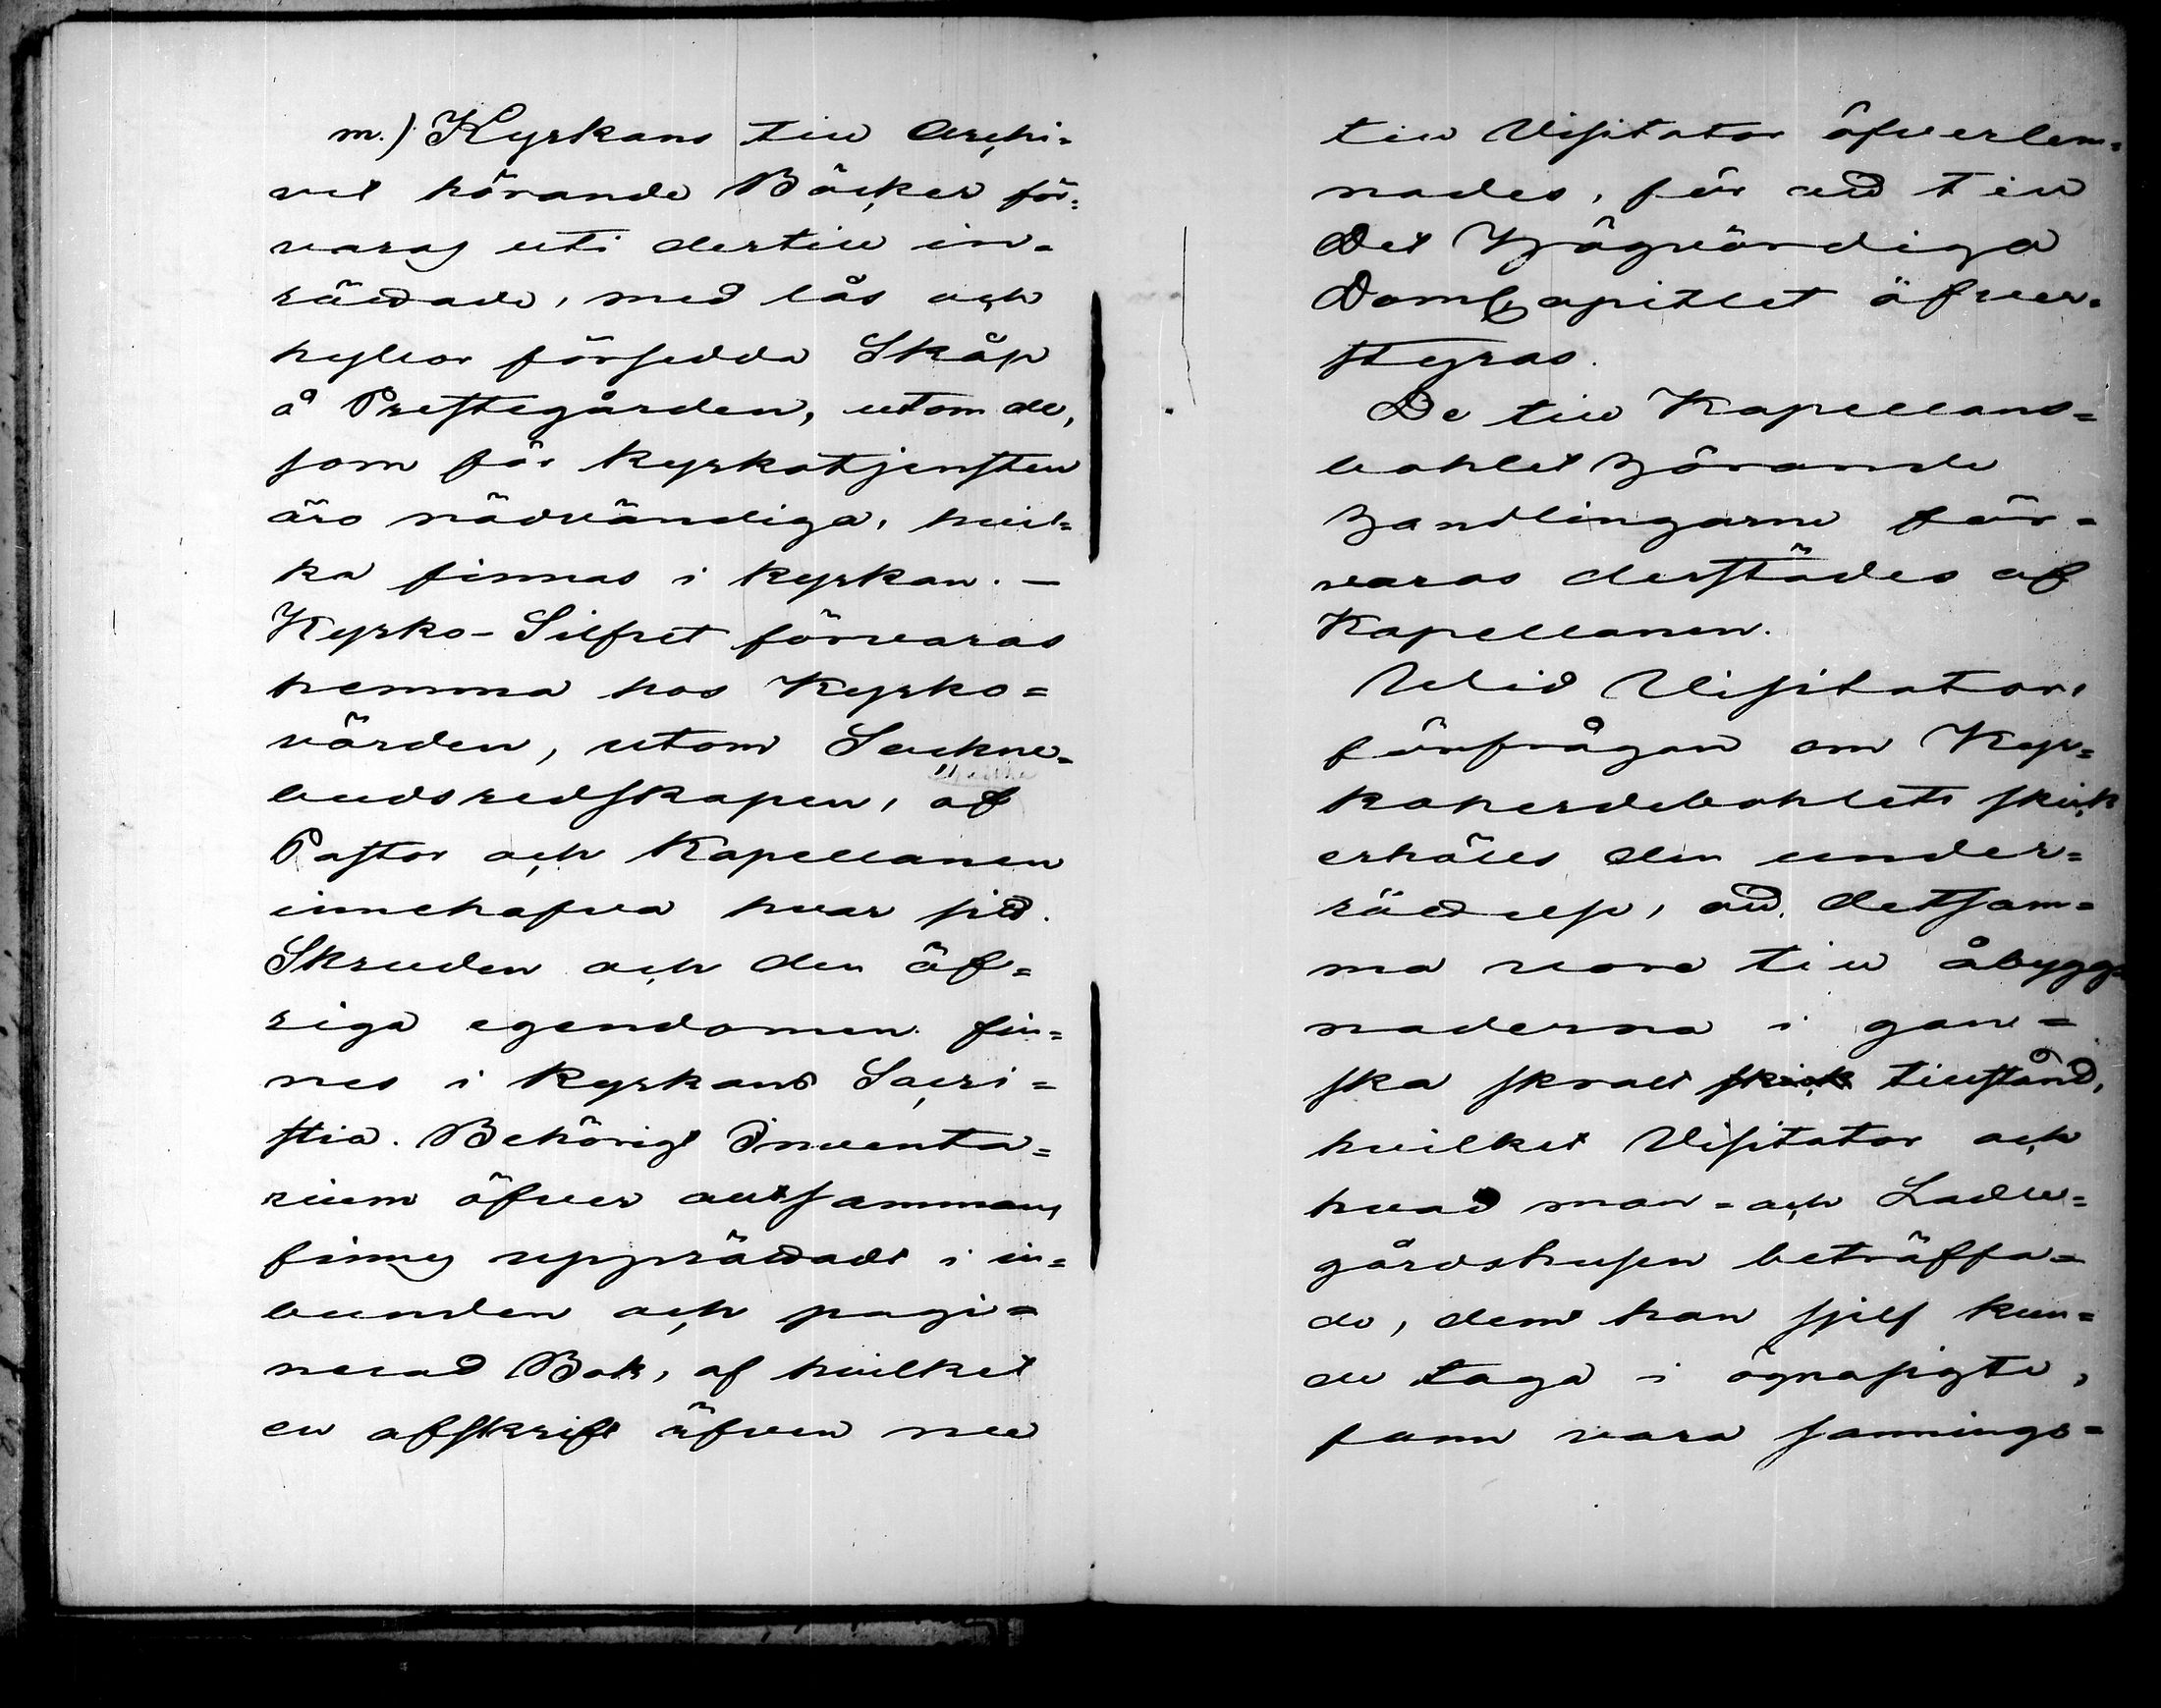 m.) Kyrkans till Archi=
vet hörande Böcker för=
varas uti dertill in=
rättade, med lås och
hyllor försedda Skåp
å Prestegården, utom de,
som för kyrkotjensten
äro nödvändiga, hvil=
ka finnas i kyrkan. —
Kyrko-Silfret förvaras
hemma hos Kyrko=
värden, utom Sockne=
budsredskapen, af
Pastor och Kapellanen
innehafva hvar sitt.
Skruden och den öf=
riga egendomen fin=
nes i Kyrkans Sacri=
stia. Behörigt Inventa=
rium öfver altsammans
finnes upprättadt i in=
bunden och pagi=
nerad Bok, af hvilket
en afskrift äfven nu
till Visitator öfverlem=
nades, för att till
Det Högvördiga
DomCapitlet öfver=
styras.
De till Kapellans=
bohlet hörande
handlingarne för=
varas derstädes af
Kapellanen.
Wid Visitators
förfrågan om Kyr=
koherdebohlets skick
erhölls den under=
rättelse, att detsam=
ma vore till åbygg=
naderna i gan=
ska skralt skick tillstånd,
hvilket Visitator och
hvad man= och Ladu=
gårdshusen beträffa=
de, dem han sjelf kun=
de taga i ögnasigte,
fann vara sannings=